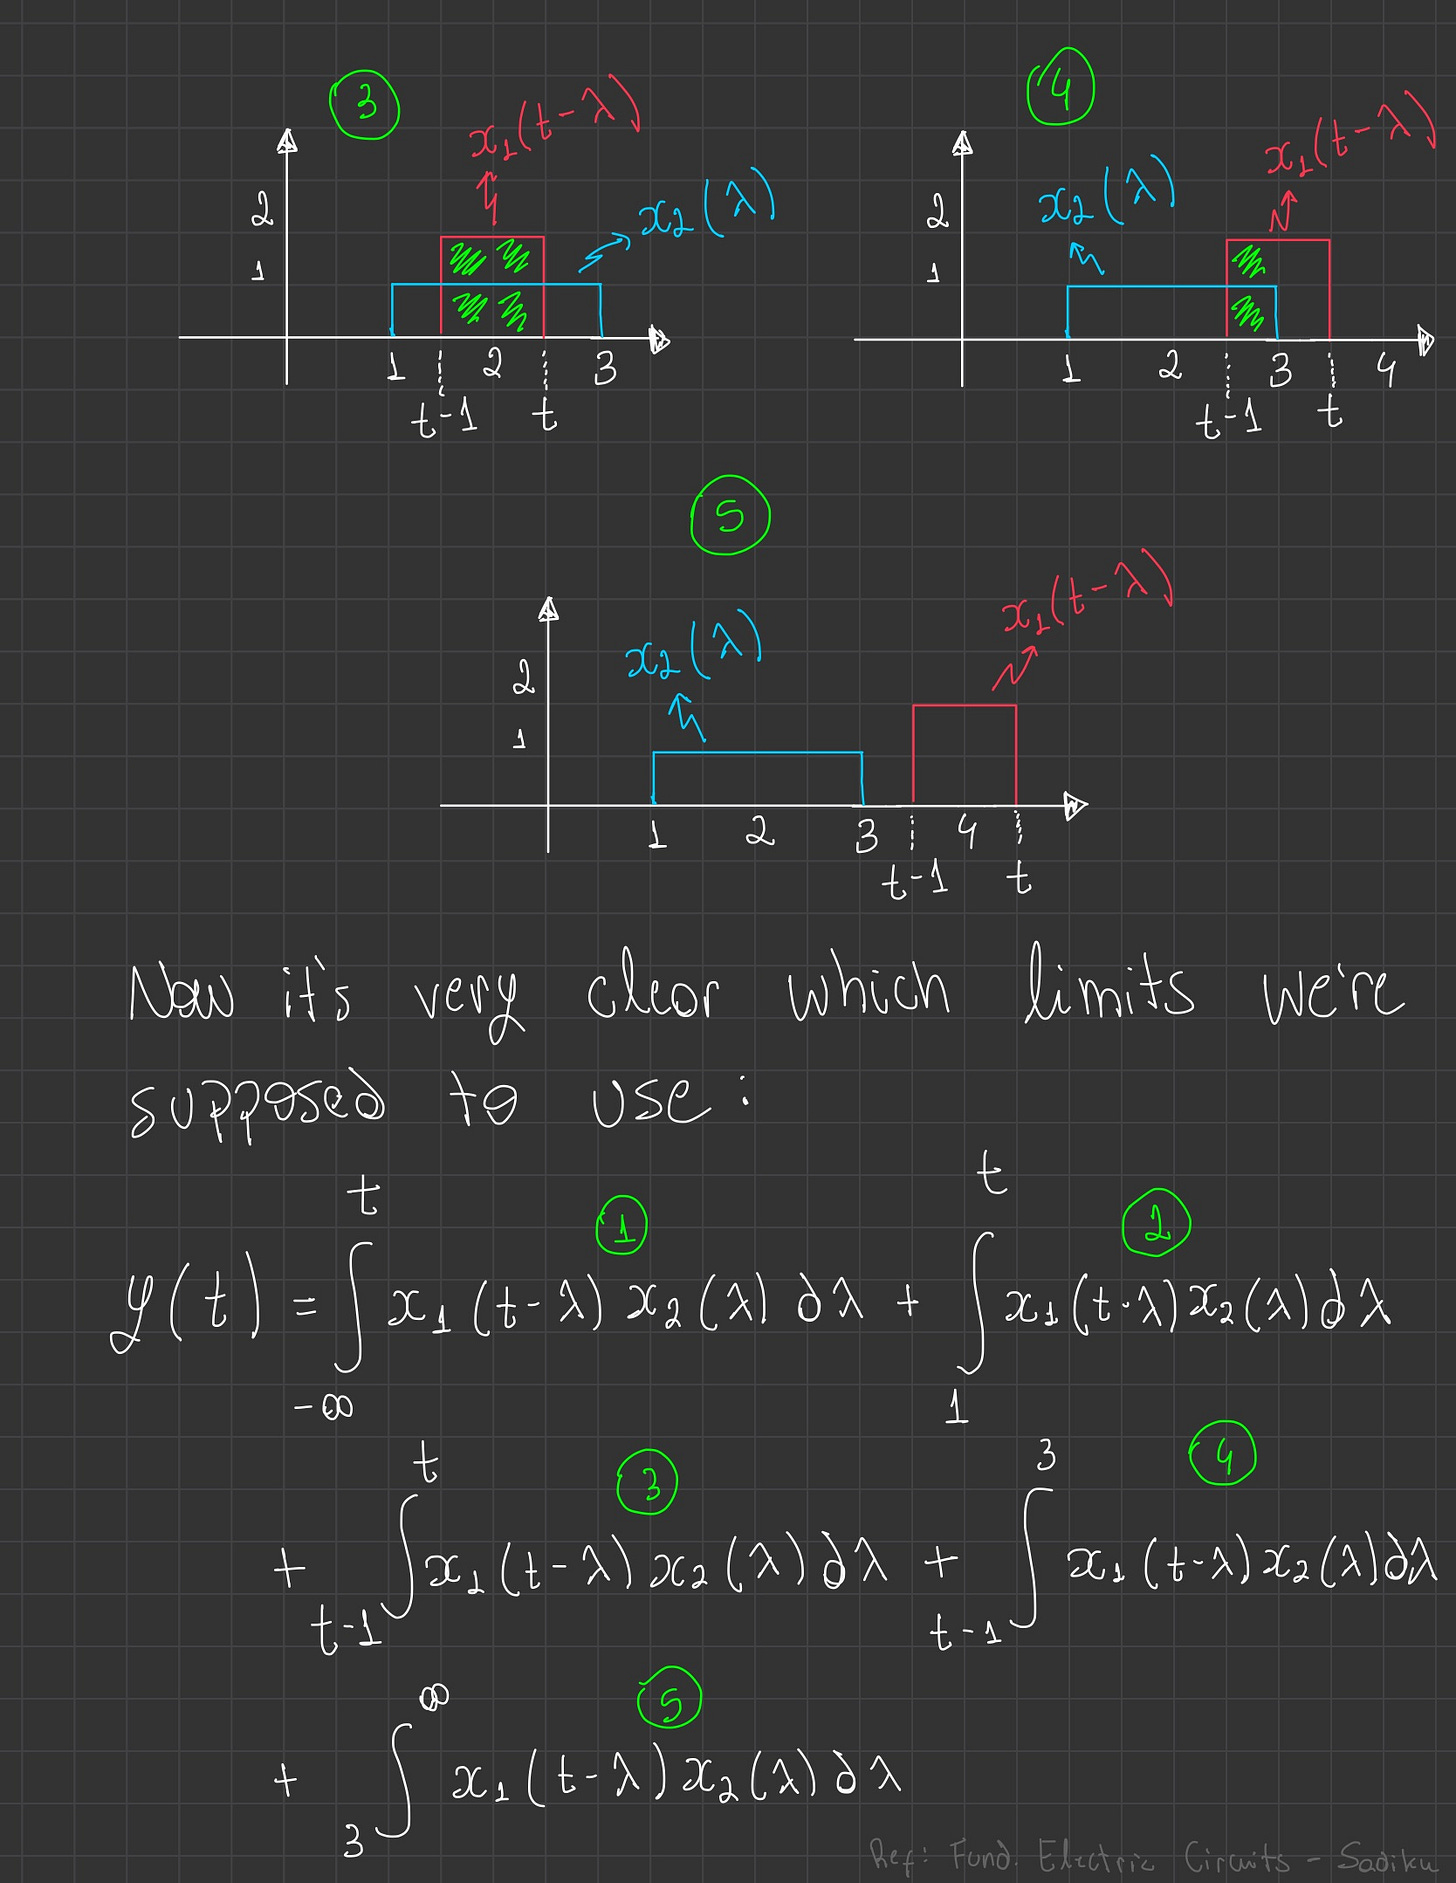 3
x₁(t-λ)
x₂(λ)
2
1
1 2 3
t-1 t
4
x₁(t-λ)
x₂(λ)
2
1
1 2 3 4
t-1 t
5
x₁(t-λ)
x₂(λ)
2
1
1 2 3 4
t-1 t
Now it's very clear which limits we're
supposed to use:
y(t) = ∫_{-∞}^{t} x₁(t-λ) x₂(λ) dλ ① + ∫_{1}^{t} x₁(t-λ) x₂(λ) dλ ②
+ ∫_{t-1}^{t} x₁(t-λ) x₂(λ) dλ ③ + ∫_{t-1}^{3} x₁(t-λ) x₂(λ) dλ ④
+ ∫_{3}^{∞} x₁(t-λ) x₂(λ) dλ ⑤
Ref: Fund. Electric Circuits - Sadiku